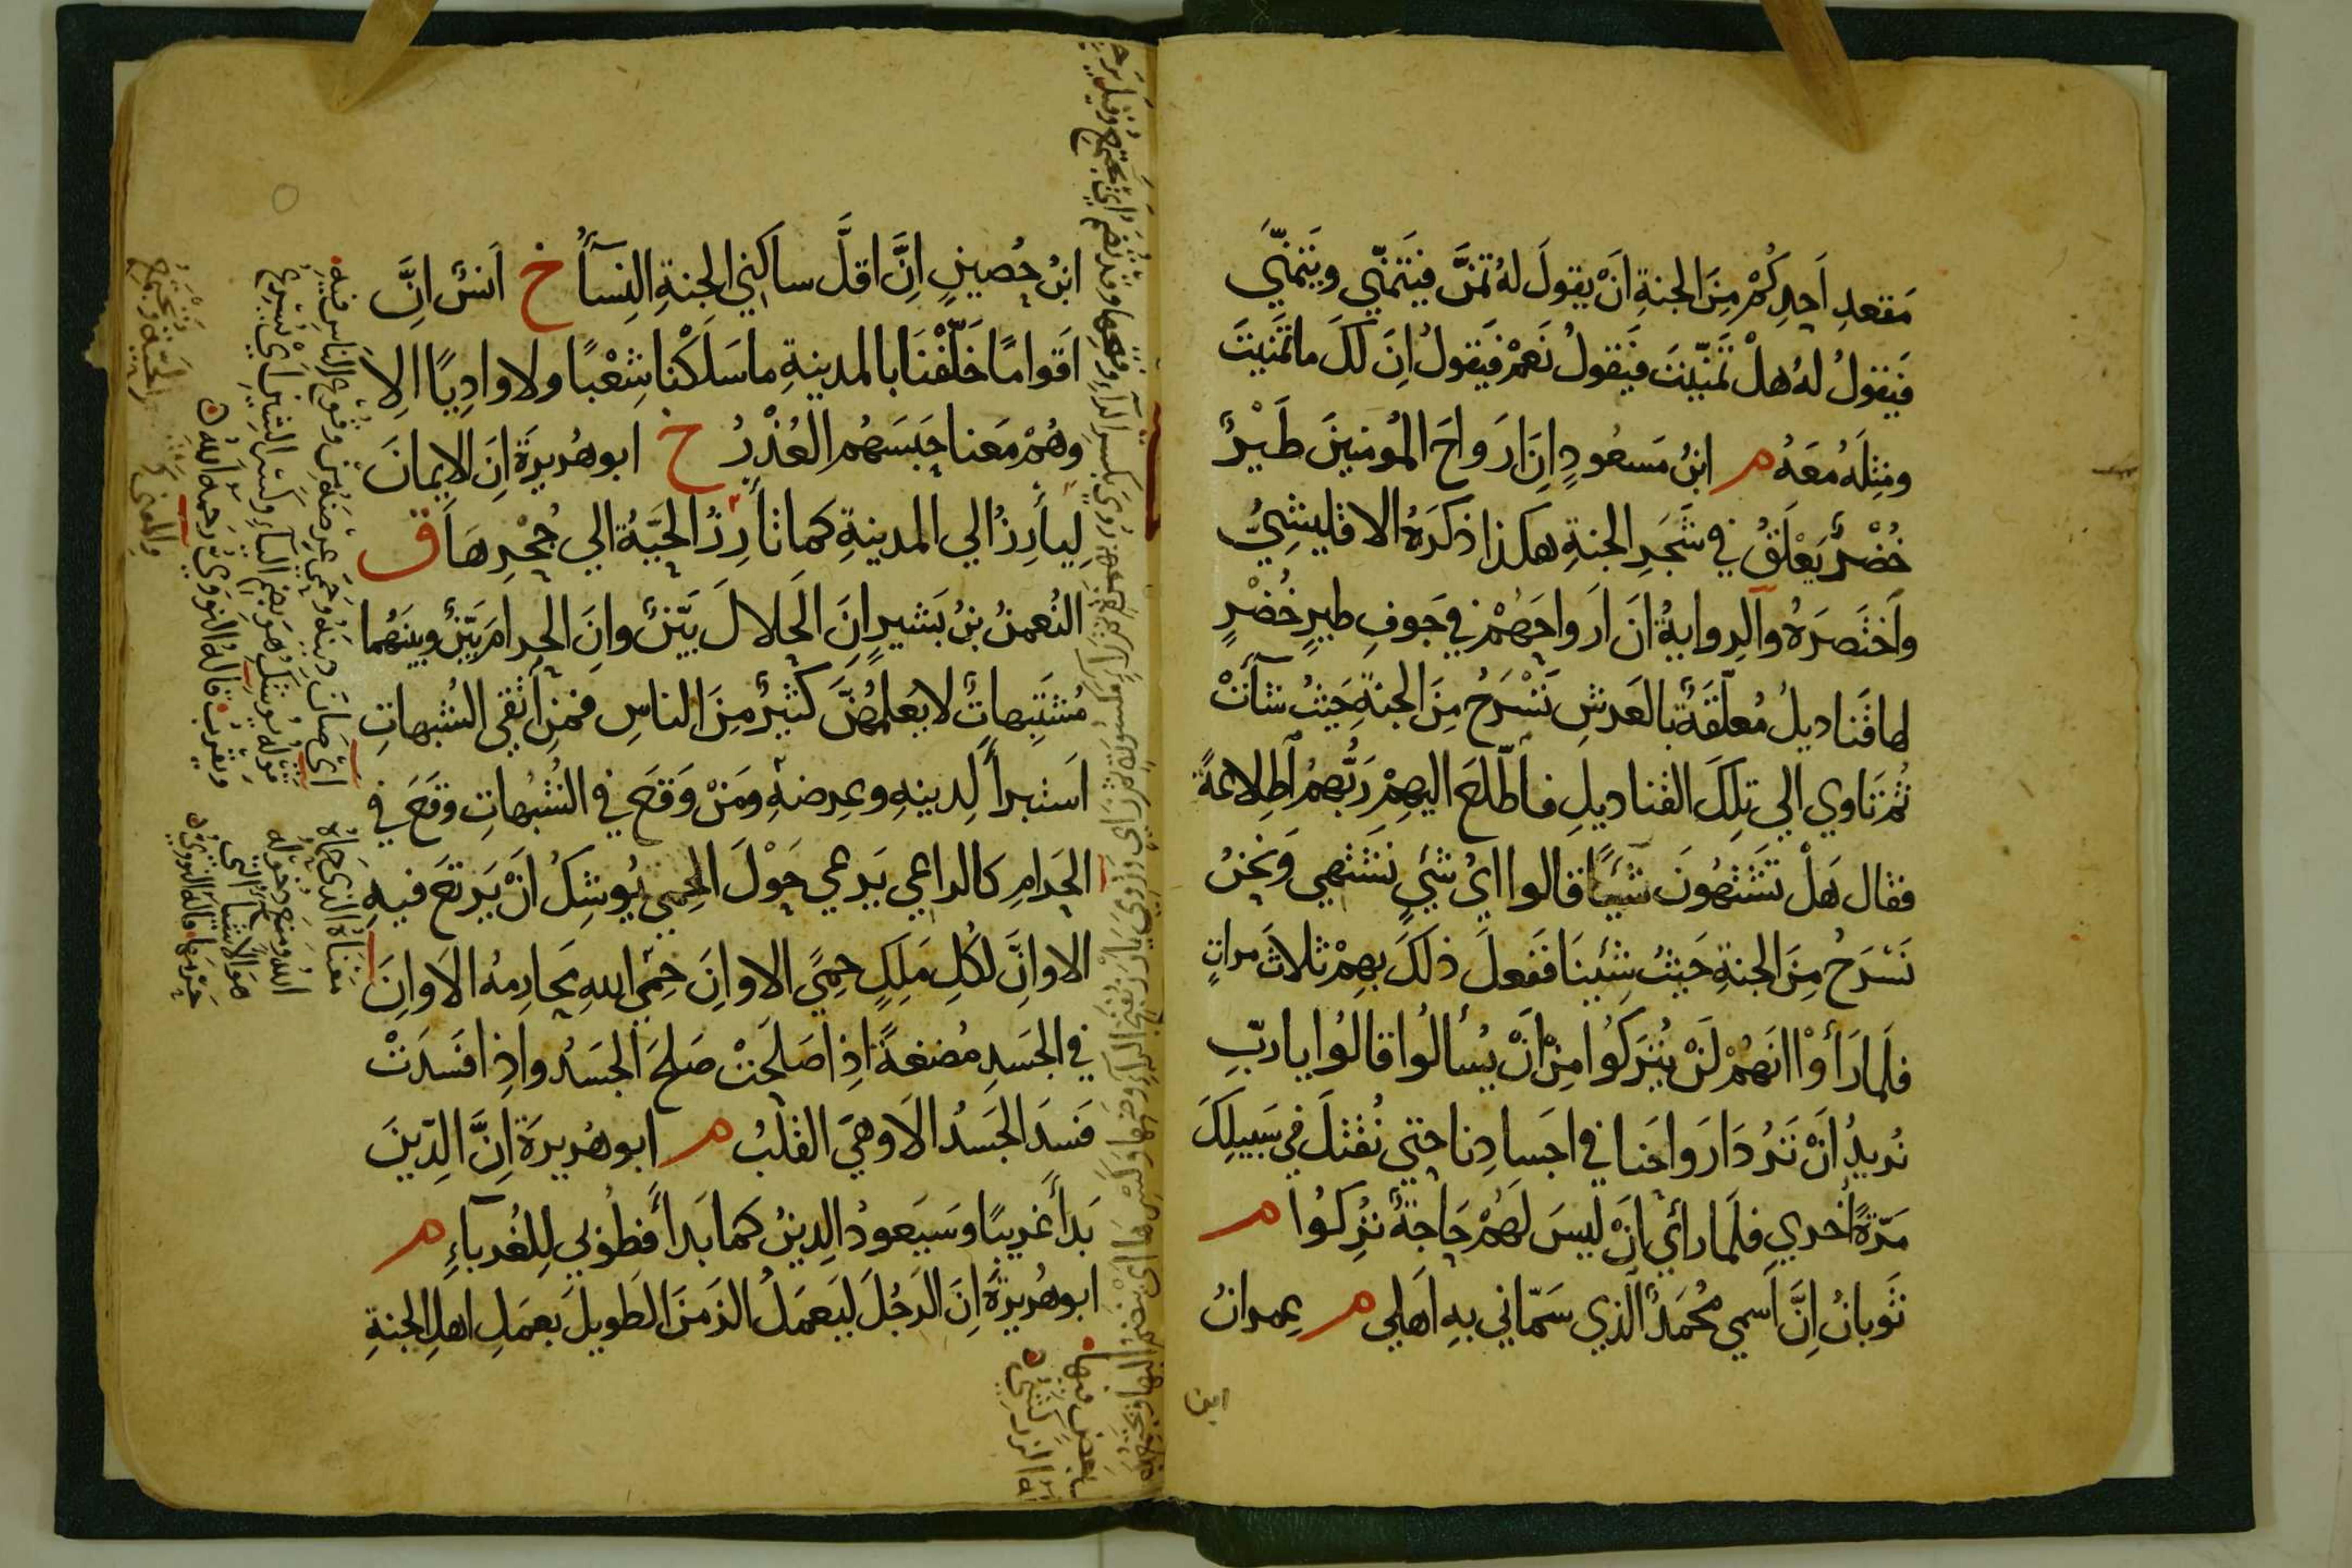 مَقعدِ اَحِدِكُمْ مِنَ الجنةِ اَنْ يقولَ لهُ تَمَنَّ فيَتَمَنّي ويَتَمَنّي
فيَقولُ لهُ هلْ تَمَنّيتَ فيَقولُ نَعَمْ فيَقولُ اِنَ لكَ ما تَمَنيتَ
ومِثلَهُ مَعَهُ م ابنُ مَسعُودٍ اِنَ ارَواحَ المُومنينَ طَيْرٌ
خُضْرٌ يَعْلَقُ في شَجَرِ الجنةِ هكذا ذكَرَهُ الاقليشِيُّ
وَاختَصَرَهُ والرِوايةُ اَنَ ارَواحَهُمْ في جَوفِ طيرٍ خُضْرٍ
لها قَناديلُ مُعلّقَةٌ بالعَرشِ تَسْرَحُ مِنَ الجنةِ حَيثُ شآءَتْ
ثُمَ تَاوي الي تِلكَ القناديلِ فاَطّلعَ اليهِمْ رَبُّهُمُ اَطِلاعةً
فقال هَلْ تَشتهُونَ شَيًا قالوا ايُ شيٍ نَشتهي وَنحنُ
نَسْرَحُ مِنَ الجنةِ حَيثُ شِئينَا فَفَعلَ ذلكَ بهِمْ ثلاثَ مراتٍ
فلَما رَأوْا انَهُمْ لَنْ يُترَكُوا مِنْ اَنْ يُسألُوا قالوُا يا ربِّ
نُريدُ اَنْ تَرُدَ ارَواحَنا في اجَسادِنا حتي نُقتَلَ في سَبيلِكَ
مَرّةً اُخري فلَما رأي اَنْ ليسَ لَهُمْ حَاجةٌ تُرِكوُا م
ثَوبانُ اِنَّ اَسمي مُحمَدٌ الذي سَمّاني بهِ اَهلي م عِمرانُ
ابن
ابنُ حُصينٍ اِنَّ اقلَّ ساكني الجنةِ النِسآءُ خ اَنسٌ اِنَّ
اقَوامًا خَلّفْنَا بالمدينةِ ما سَلَكْنا شِعْبًا ولا وادِيًا الِاَ
وهُمْ مَعَنا حَبَسَهُم العُذْرُ خ ابوهُريرَة اِنَ الايمانَ
ليأرِزُ الي المدينةِ كما تأرِزُ الحَيَّةُ الي جُحْرِهَا ق
النُعمنُ بنُ بَشيرٍ اِنَ الحَلالَ بَيّنٌ وانَ الحرامَ بَيّنٌ وبينَهُما
مُشتَبِهاتٌ لا يَعلَمُهُنَّ كثيرٌ مِنَ الناسِ فمنِ اَتَقي الشُبهاتِ
اَستبرأَ لِدينهِ وعِرضهِ ومَنْ وَقعَ في الشُبُهاتِ وقَعَ في
الحَرامِ كالراعي يَرعي حَوْلَ الحِمي يُوشِكُ اَنْ يَرتعَ فيهِ
الا وانَّ لكُلِ مَلِكٍ حِمًي الا وانَ حِمَي اللهِ محَارِمهُ الاَ وانَ
في الجسَدِ مُضغةً اذِا صَلَحَتْ صَلحَ الجسَدُ واذِا فسَدَتْ
فَسَدَ الجسَدُ الاَ وهيَ القلبُ م ابوهُريرَة اِنَّ الدّينَ
بَدأَ غريبًا وسَيَعودُ الدِينُ كما بَدأَ فطُوبي لِلغُربآءِ م
ابوهُريرةَ اِنَ الرَجُلَ ليَعمَلُ الزَمنَ الطويلَ بعمَلِ اهلِ الجنةِ